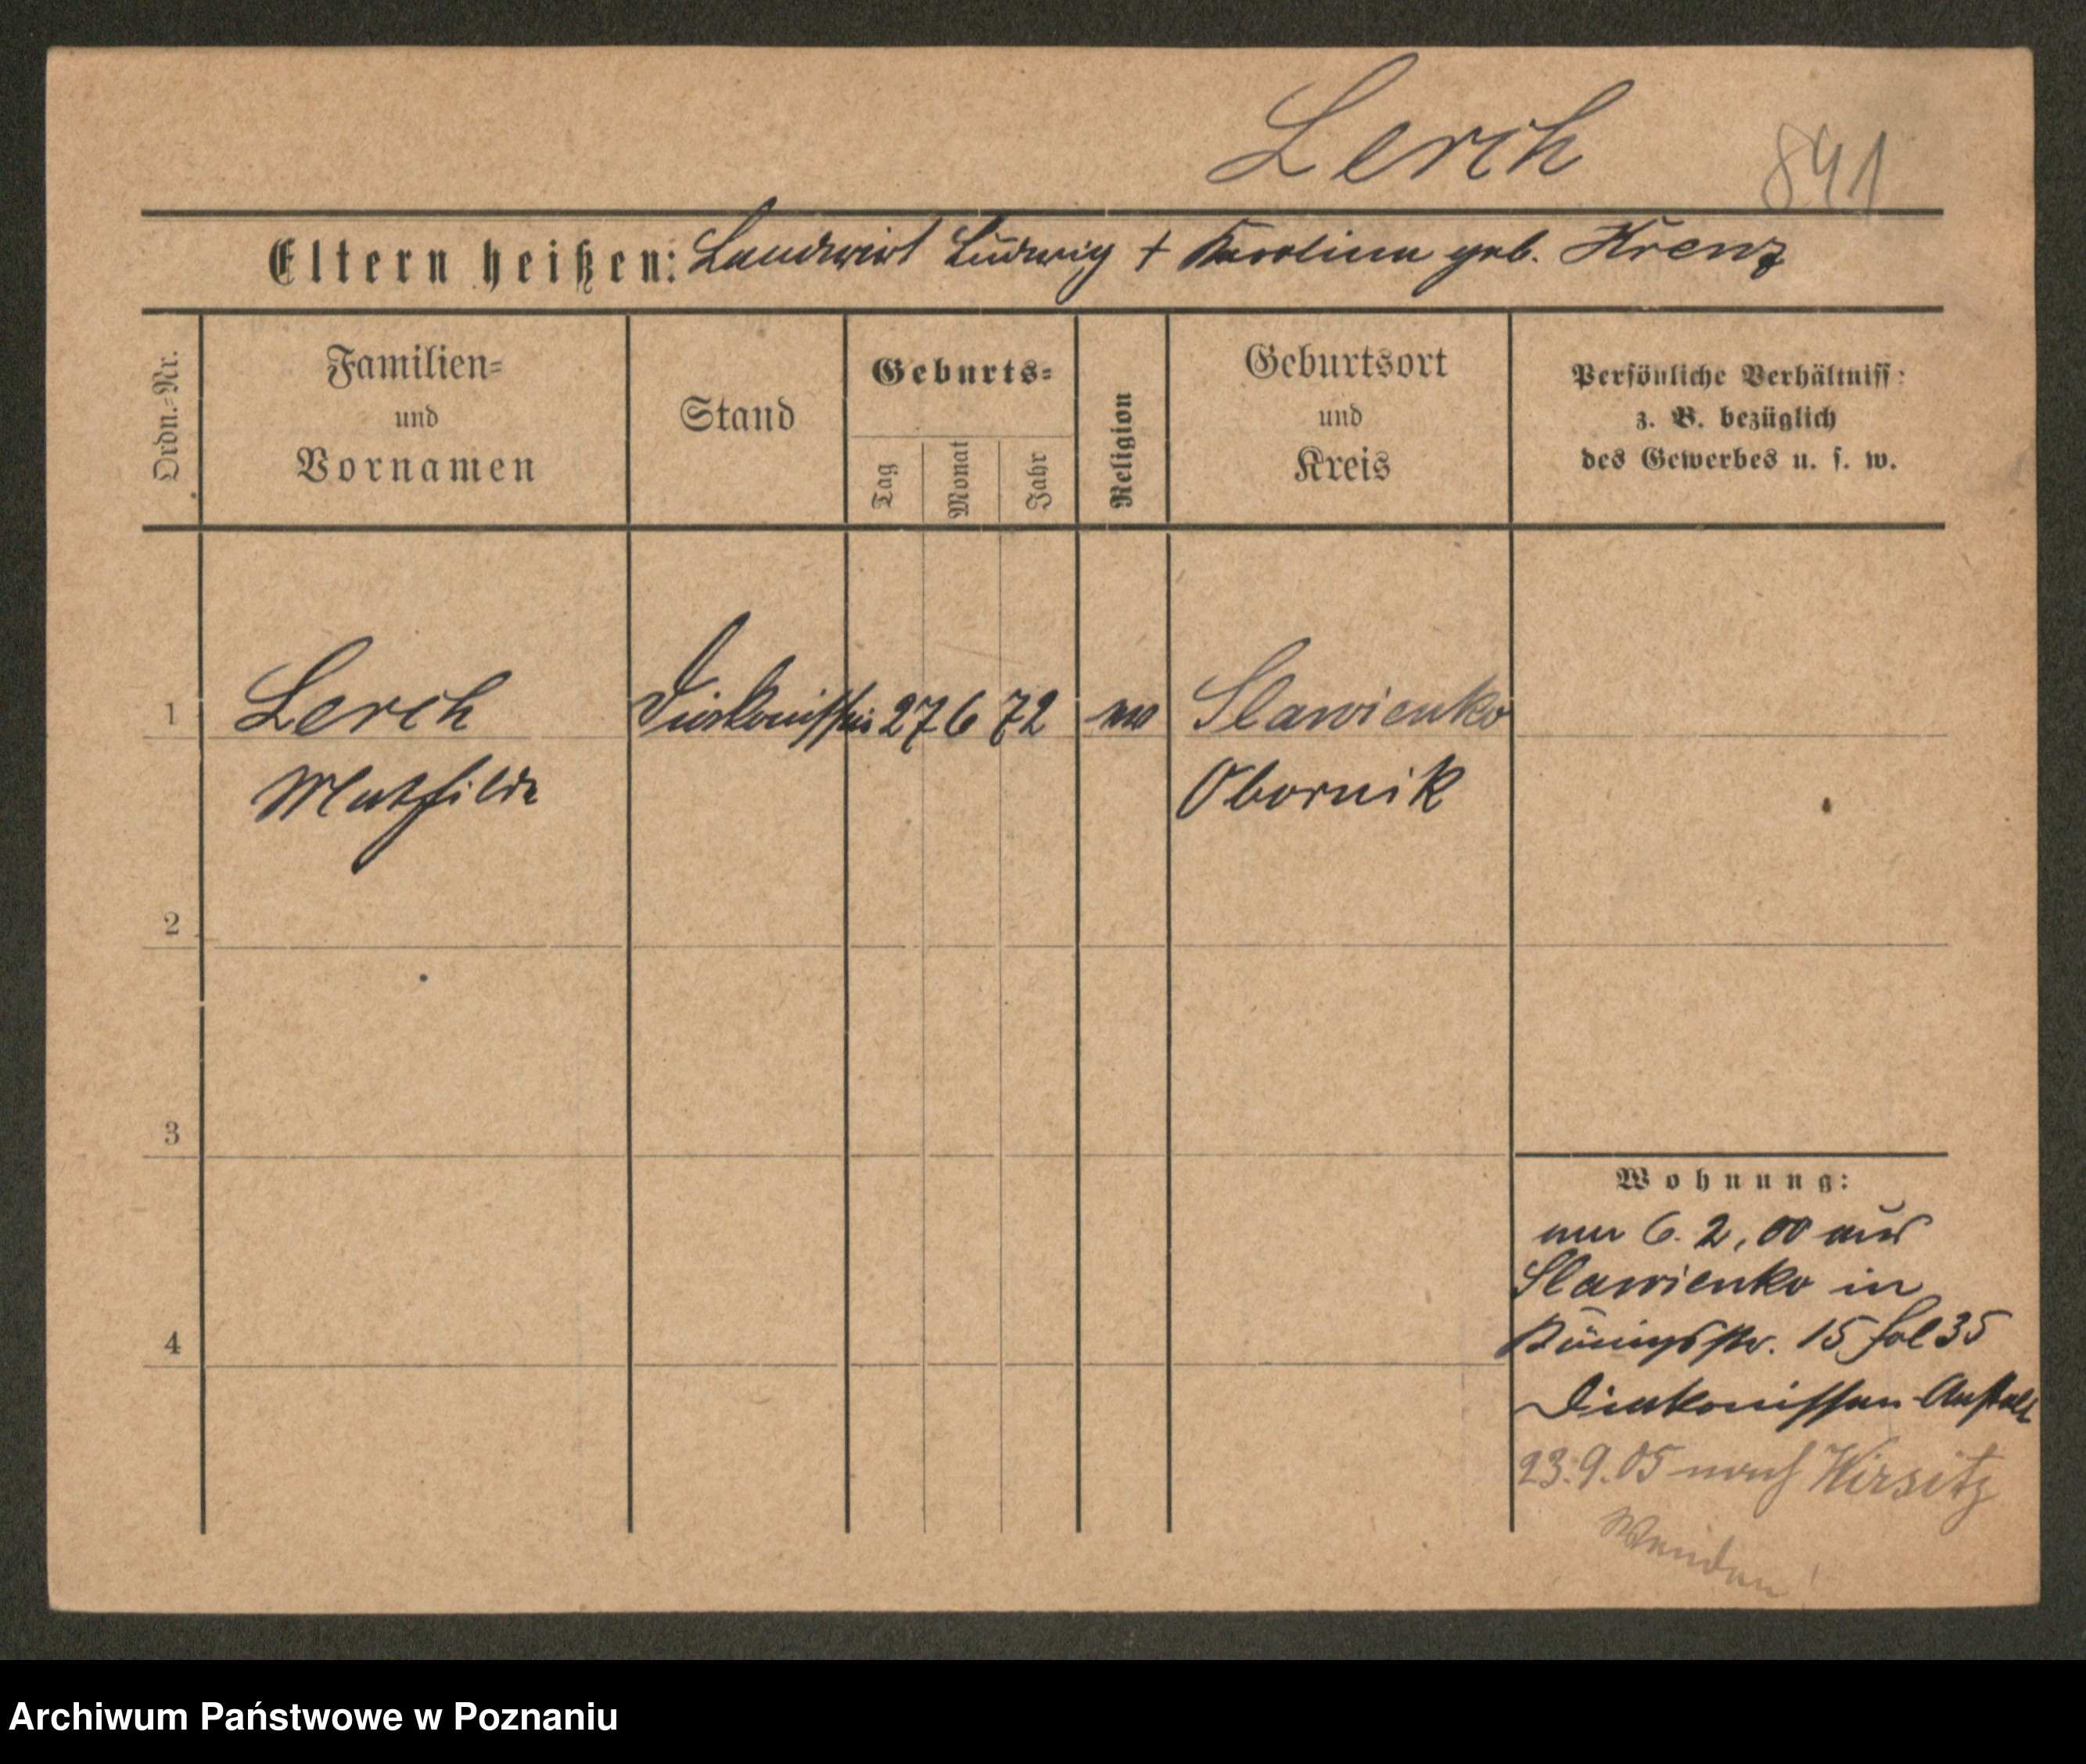 Lerch 841
Eltern heißen: Landwirt Ludwig + Karoline geb. Krenz
Ordn.=Nr.
Familien=
und
Vornamen
Stand
Geburts=
Tag
Monat
Jahr
Religion
Geburtsort
und
Kreis
Persönliche Verhältniss:
z. B. bezüglich
des Gewerbes u. s. w.
1 Lerch Diakonissin 27 6 72 ev Slawienko
Mathilde Obornik
2
3
4
Wohnung:
am 6. 2. 00 aus
Slawienko in
Königsstr. 15 fol 35
Diakonissen-Anstalt
23.9.05 nach Wirsitz
Wenden!
Archiwum Państwowe w Poznaniu